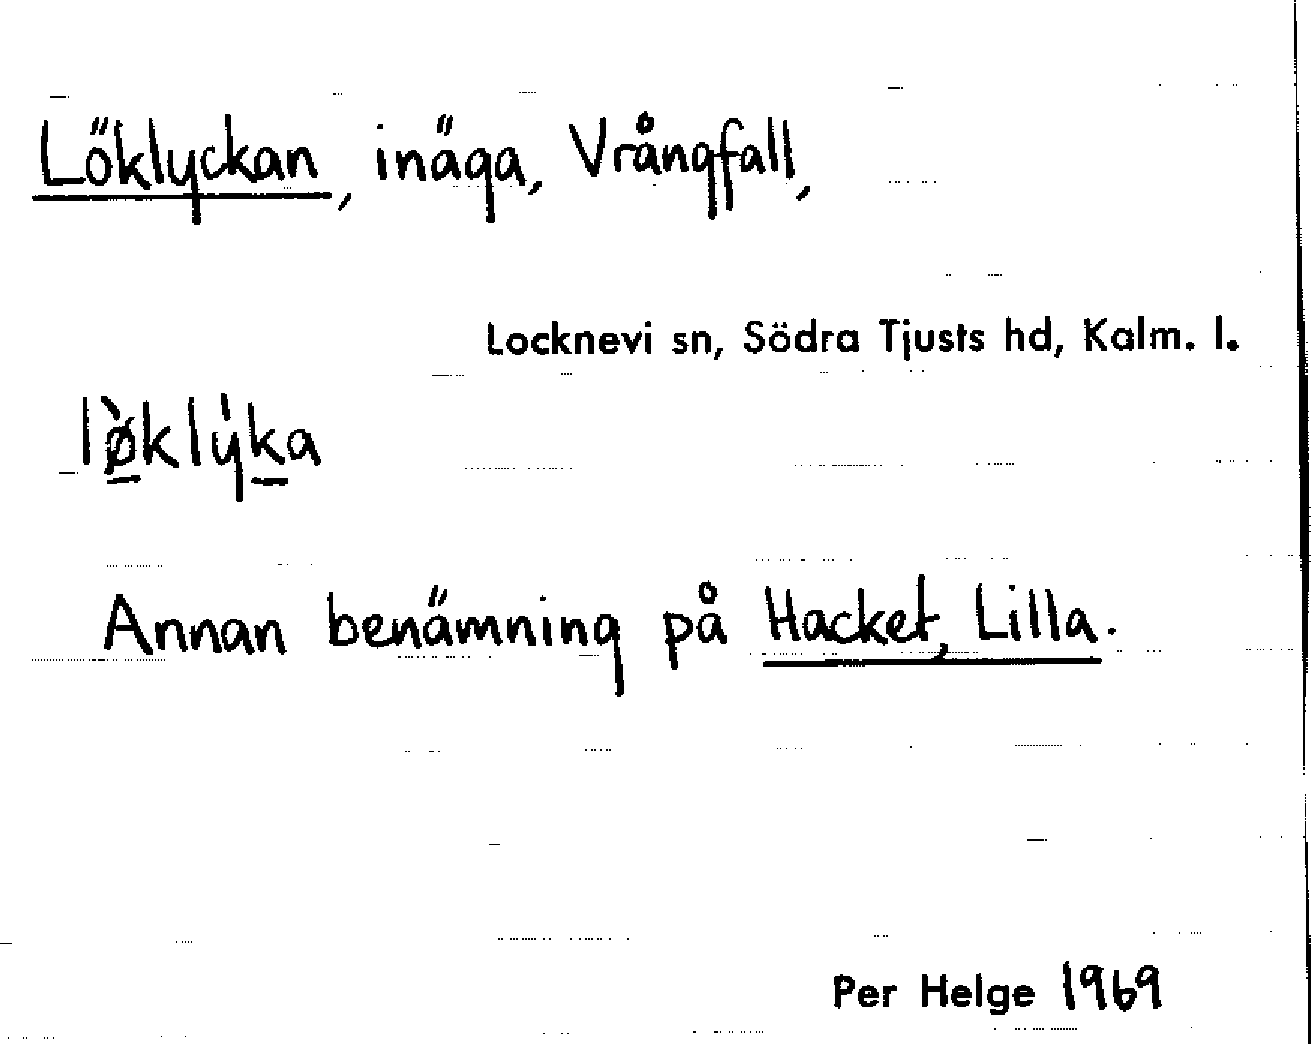 Löklyckan, inäga, Vrångfall,
Locknevi sn, Södra Tjusts hd, Kalm. l.
lø̀klýka
Annan benämning på Hacket, Lilla.
Per Helge 1969